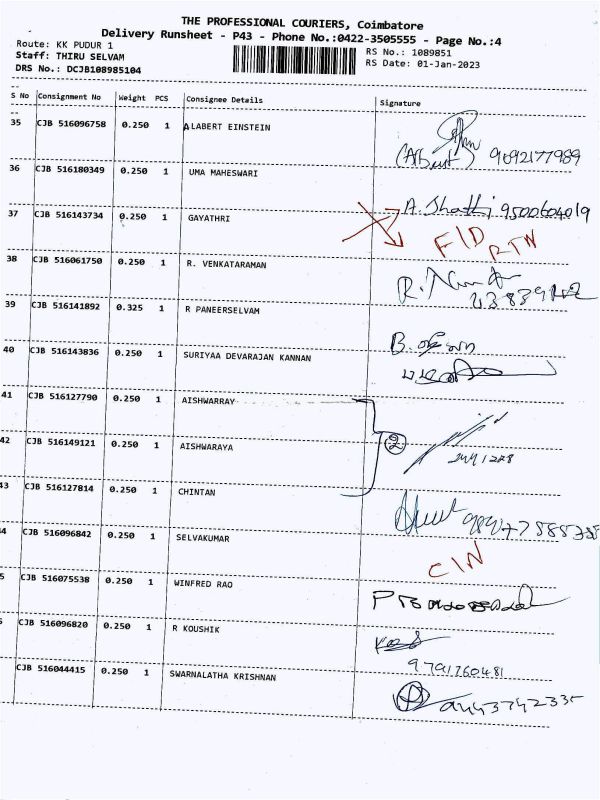 THE PROFESSIONAL COURIERS, Coimbatore
Delivery Runsheet - P43 - Phone No.:0422-3505555 - Page No.:4
Route: KK PUDUR 1
RS No.: 1089851
Staff: THIRU SELVAM
RS Date: 01-Jan-2023
DRS No.: DCJB108985104
S No Consignment No Weight PCS Consignee Details Signature
35 CJB 516096758 0.250 1 ALABERT EINSTEIN
(Albert) 9692177989
36 CJB 516180349 0.250 1 UMA MAHESWARI
A. Shathi 9500604019
37 CJB 516143734 0.250 1 GAYATHRI
F/D RTN
38 CJB 516061750 0.250 1 R. VENKATARAMAN
R.
39 CJB 516141892 0.325 1 R PANEERSELVAM
B.
40 CJB 516143836 0.250 1 SURIYAA DEVARAJAN KANNAN
41 CJB 516127790 0.250 1 AISHWARRAY
2
42 CJB 516149121 0.250 1 AISHWARAYA
43 CJB 516127814 0.250 1 CHINTAN
4 CJB 516096842 0.250 1 SELVAKUMAR
C/N
5 CJB 516075538 0.250 1 WINFRED RAO
CJB 516096820 0.250 1 R KOUSHIK
9791760481
CJB 516044415 0.250 1 SWARNALATHA KRISHNAN